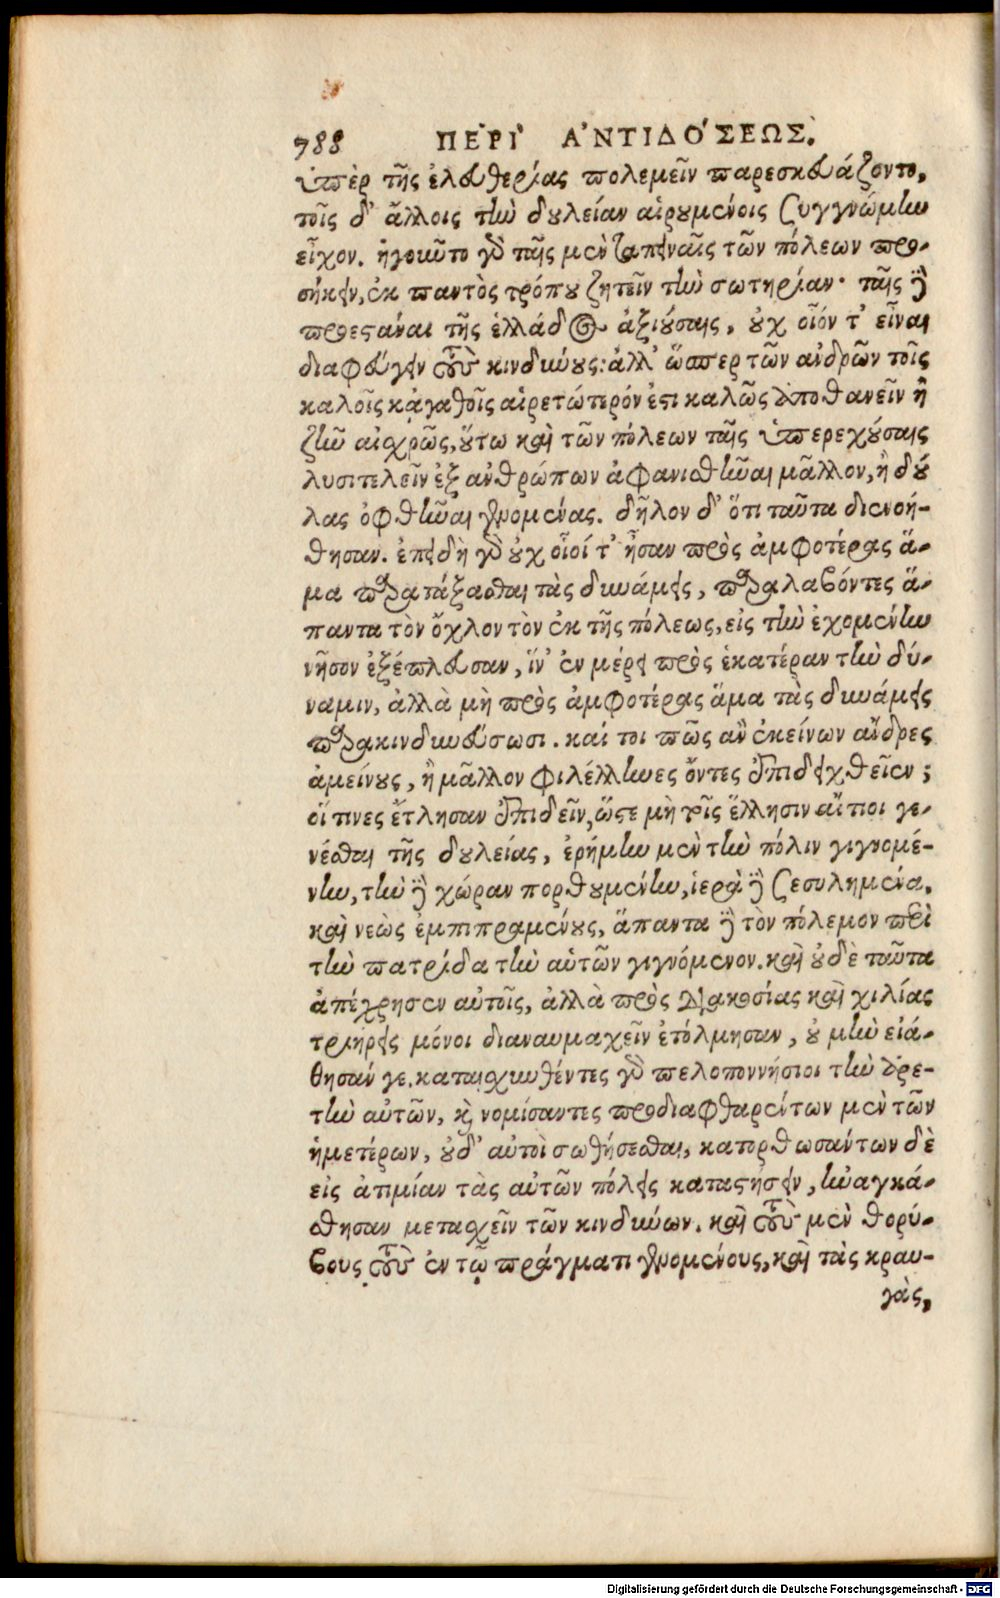 788 ΠΕΡῚ ἈΝΤΙΔΌΣΕΩΣ.
ὑπὲρ τῆς ἐλευθερίας πολεμεῖν παρεσκευάζοντο,
τοῖς δ' ἄλλοις τὴν δουλείαν αἱρουμένοις συγγνώμην
εἶχον. ἡγοῦντο γὰρ ταῖς μὲν ταπειναῖς τῶν πόλεων προ-
σήκειν, ἐκ παντὸς τρόπου ζητεῖν τὴν σωτηρίαν· ταῖς δὲ
προεστάναι τῆς ἑλλάδος ἀξιούσαις, οὐχ οἷόν τ' εἶναι
διαφεύγειν τοὺς κινδύνους: ἀλλ' ὥσπερ τῶν ἀνδρῶν τοῖς
καλοῖς κἀγαθοῖς αἱρετώτερόν ἐστι καλῶς ἀποθανεῖν ἢ
ζῆν αἰσχρῶς, οὕτω καὶ τῶν πόλεων ταῖς ὑπερεχούσαις
λυσιτελεῖν ἐξ ἀνθρώπων ἀφανισθῆναι μᾶλλον, ἢ δού
λας ὀφθῆναι γενομένας. δῆλον δ' ὅτι ταῦτα διενοή-
θησαν. ἐπειδὴ γὰρ οὐχ οἷοί τ' ἦσαν πρὸς ἀμφοτέρας ἅ-
μα παρατάξασθαι τὰς δυνάμεις, παραλαβόντες ἅ-
παντα τὸν ὄχλον τὸν ἐκ τῆς πόλεως, εἰς τὴν ἐχομένην
νῆσον ἐξέπλευσαν, ἵν' ἐν μέρει πρὸς ἑκατέραν τὴν δύ-
ναμιν, ἀλλὰ μὴ πρὸς ἀμφοτέρας ἅμα τὰς δυνάμεις
παρακινδυνεύσωσι. καί τοι πῶς ἂν ἐκείνων ἄνδρες
ἀμείνους, ἢ μᾶλλον φιλέλληνες ὄντες ἐπιδειχθεῖεν;
οἵ τινες ἔτλησαν ἐπιδεῖν, ὥστε μὴ τοῖς ἕλλησιν αἴτιοι γε-
νέσθαι τῆς δουλείας, ἐρήμην μὲν τὴν πόλιν γιγνομέ-
νην, τὴν δὲ χώραν πορθουμένην, ἱερὰ δὲ σεσυλημένα,
καὶ νεὼς ἐμπιπραμένους, ἅπαντα δὲ τὸν πόλεμον περὶ
τὴν πατρίδα τὴν αὑτῶν γιγνόμενον. καὶ οὐδὲ ταῦτα
ἀπέχρησεν αὐτοῖς, ἀλλὰ πρὸς διακοσίας καὶ χιλίας
τριήρεις μόνοι διαναυμαχεῖν ἐτόλμησαν, οὐ μὴν εἰά-
θησάν γε. καταισχυνθέντες γὰρ πελοποννήσιοι τὴν ἀρε-
τὴν αὐτῶν, καὶ νομίσαντες προδιαφθαρέντων μὲν τῶν
ἡμετέρων, οὐδ' αὐτοὶ σωθήσεσθαι, κατορθωσάντων δὲ
εἰς ἀτιμίαν τὰς αὑτῶν πόλεις καταστήσειν, ἠναγκά-
σθησαν μετασχεῖν τῶν κινδύνων. καὶ τοὺς μὲν θορύ-
βους τοὺς ἐν τῷ πράγματι γενομένους, καὶ τὰς κραυ-
γὰς,
Digitalisierung gefördert durch die Deutsche Forschungsgemeinschaft - DFG